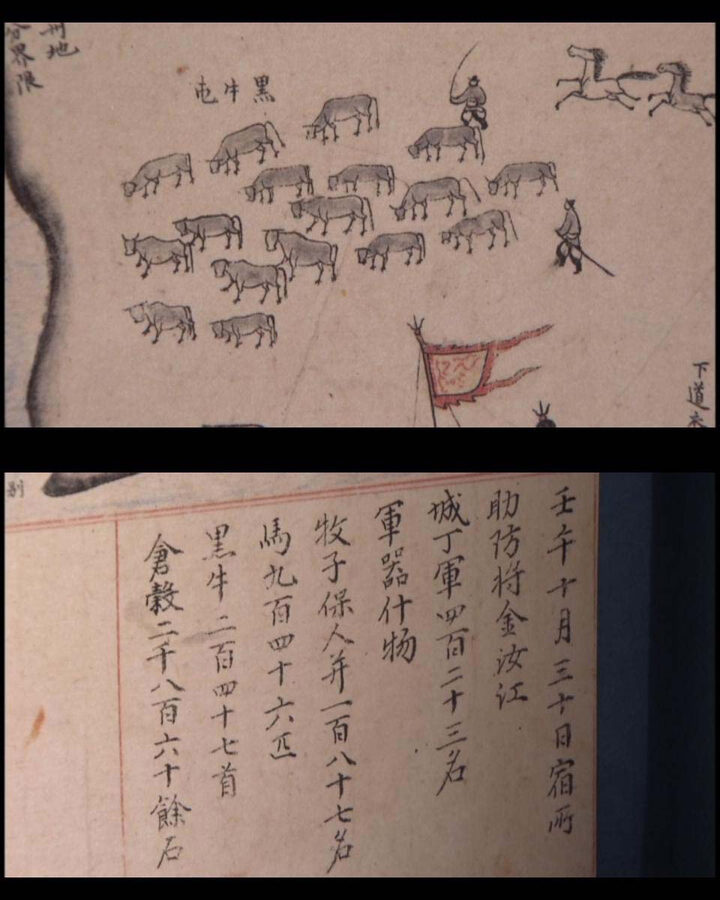 下道
黑牛屯
州地
界限
壬午十月三十日宿所
助防將金汝江
城丁軍四百二十三名
軍器什物
牧子保人并一百八十七名
馬九百四十六匹
黑牛二百四十七首
倉穀二千八百六十餘石